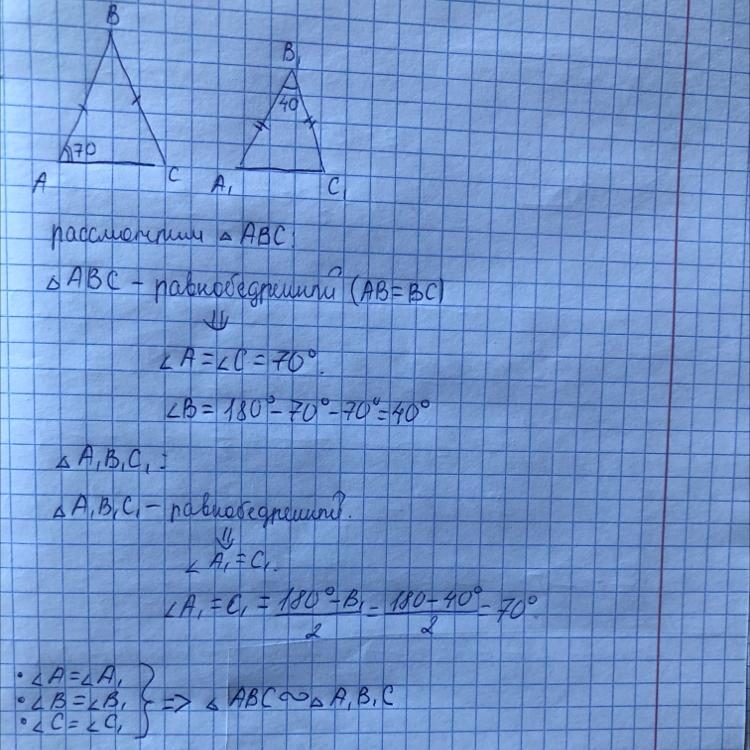 B
B₁
40
70
A
C
A₁
C₁
рассмотрим △ ABC:
△ ABC – равнобедренный (AB=BC)
⇓
∠A=∠C=70°.
∠B= 180°-70°-70°=40°
△ A₁B₁C₁:
△ A₁B₁C₁ – равнобедренный.
⇓
∠ A₁=C₁.
∠A₁=C₁ = (180°-B₁)/2 = (180-40°)/2 = 70°.
• ∠A=∠A₁
• ∠B=∠B₁ } => △ ABC ∾ △ A₁B₁C
• ∠C=∠C₁